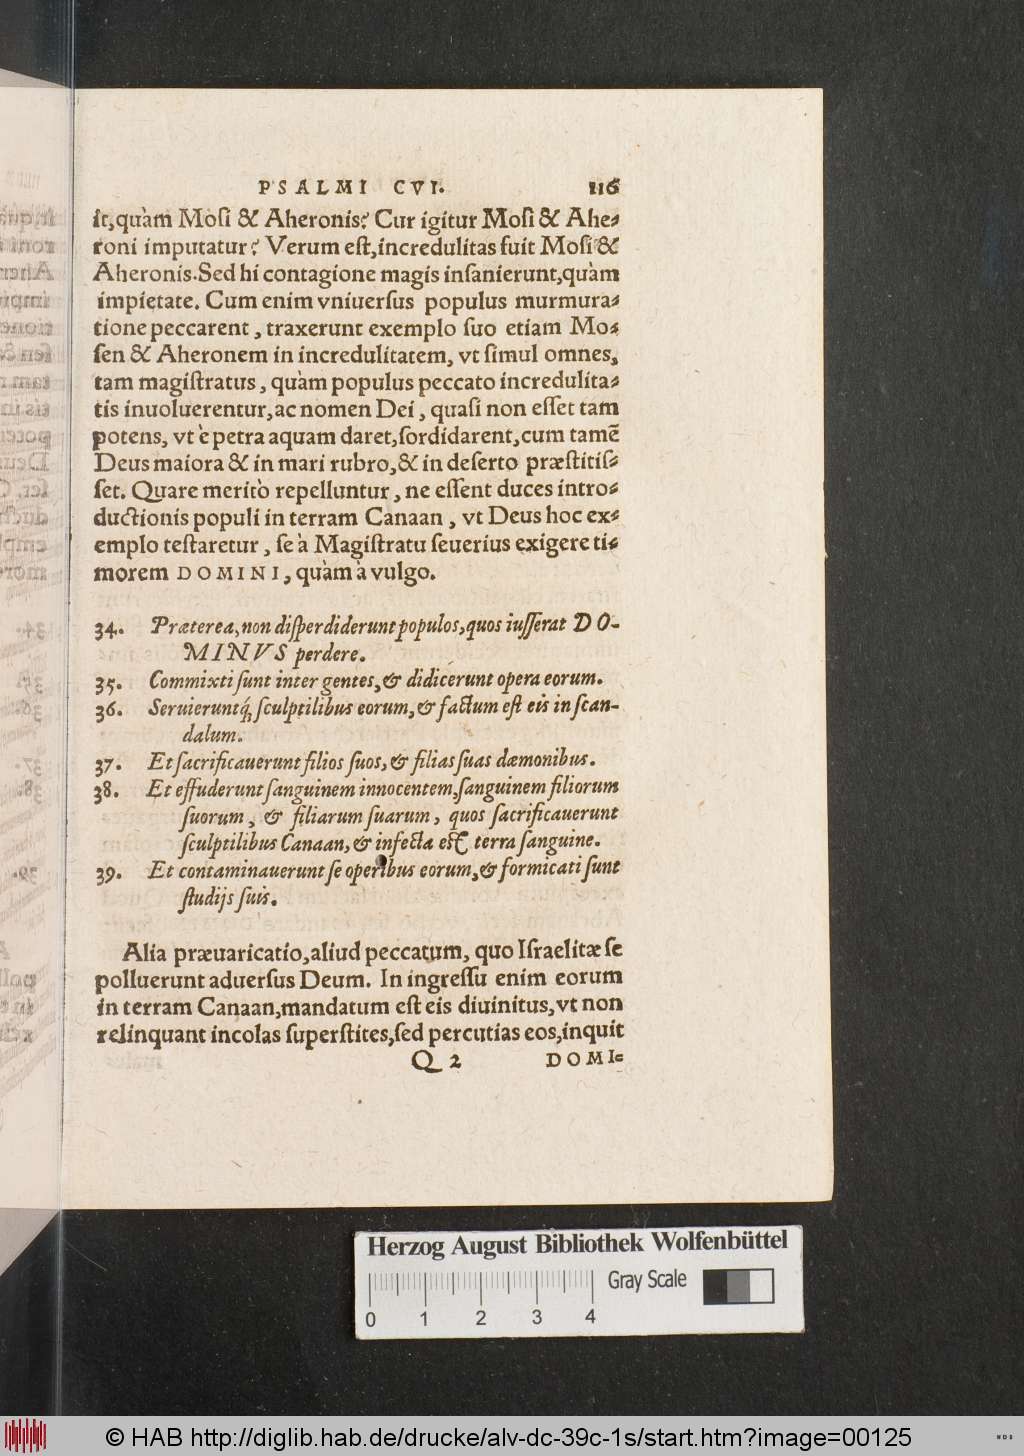 PSALMI CVI. 116
it,quàm Moſi & Aheronis? Cur igitur Moſi & Ahe⸗
roni imputatur? Verum eſt,incredulitas fuit Moſi &
Aheronis.Sed hi contagione magis inſanierunt,quàm
impietate. Cum enim vniuerſus populus murmura⸗
tione peccarent, traxerunt exemplo ſuo etiam Mo⸗
ſen & Aheronem in incredulitatem, vt ſimul omnes,
tam magiſtratus, quàm populus peccato incredulita⸗
tis inuoluerentur,ac nomen Dei, quaſi non eſſet tam
potens, vt è petra aquam daret,ſordidarent,cum tamẽ
Deus maiora & in mari rubro,& in deſerto præſtitiſ⸗
ſet. Quare meritò repelluntur, ne eſſent duces intro⸗
ductionis populi in terram Canaan, vt Deus hoc ex⸗
emplo teſtaretur, ſe à Magiſtratu ſeuerius exigere ti⸗
morem DOMINI, quàm à vulgo.
34. Præterea,non diſperdiderunt populos,quos iuſſerat DO-
MINVS perdere.
35. Commixti ſunt inter gentes,& didicerunt opera eorum.
36. Seruieruntq́; ſculptilibus eorum,& factum eſt eis in ſcan-
dalum.
37. Et ſacrificauerunt filios ſuos,& filias ſuas dæmonibus.
38. Et effuderunt ſanguinem innocentem,ſanguinem filiorum
ſuorum, & filiarum ſuarum, quos ſacrificauerunt
ſculptilibus Canaan,& infecta eſt terra ſanguine.
39. Et contaminauerunt ſe operibus eorum,& formicati ſunt
ſtudijs ſuis.
Alia præuaricatio,aliud peccatum, quo Iſraelitæ ſe
polluerunt aduerſus Deum. In ingreſſu enim eorum
in terram Canaan,mandatum eſt eis diuinitus,vt non
relinquant incolas ſuperſtites,ſed percutias eos,inquit
Q 2 DOMI⸗
Herzog August Bibliothek Wolfenbüttel
Gray Scale
0 1 2 3 4
© HAB http://diglib.hab.de/drucke/alv-dc-39c-1s/start.htm?image=00125